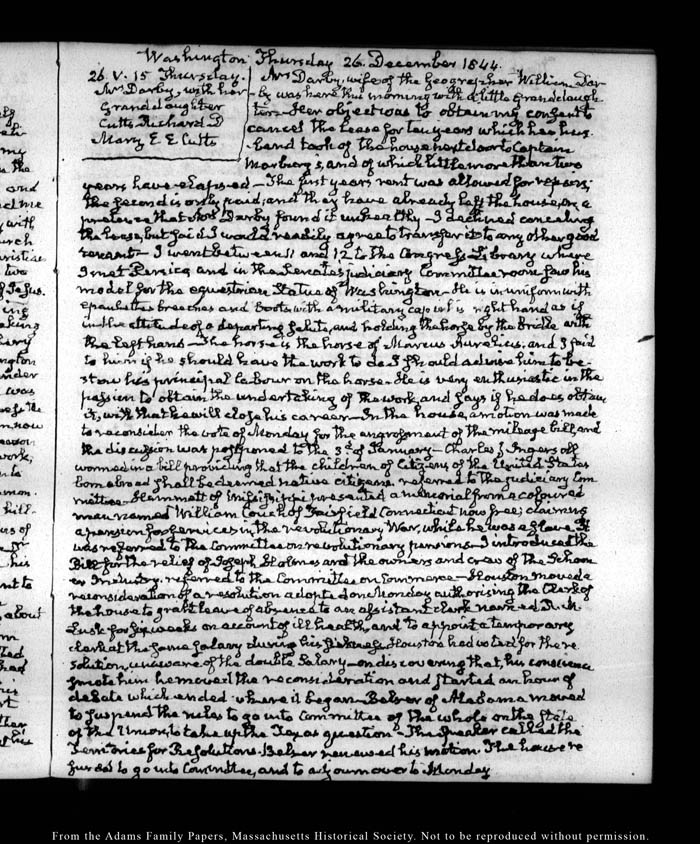 Washington Thursday 26. December 1844.
26. V. 15 Thursday.
Mrs Darby, with her
Granddaughter
Cutts Richard D
Mary E E Cutts
Mrs Darby, wife of the Geographer William Dar-
by was here this morning with a little Granddaugh-
ter. Her object was to obtain my consent to
cancel the Lease for ten years which her hus-
band took of the house next door to Captain
Marbury's, and of which little more than two
years have elapsed — The first years rent was allowed for repairs;
the second is only paid, and they have already left the house, on a
pretence that Mrs Darby found it unhealthy — I declined cancelling
the lease, but said I would readily agree to transfer it to any other good
tenant — I went between 11 and 12 to the Congress Library where
I met Persico, and in the Senate's judiciary Committee room saw his
model for the equestrian Statue of Washington — He is in uniform with
epaulettes breeches and boots with a military cap in his right hand as if
in the attitude of a departing salute, and holding the horse by the bridle with
the left hand — The horse is the horse of Marcus Aurelius, and I said
to him if he should have the work to do I should advise him to be-
stow his principal labour on the horse — He is very enthusiastic in the
passion to obtain the undertaking of the work, and says if he does obtain
it, with that he will close his career — In the house, a motion was made
to reconsider the vote of Monday for the engrossment of the mileage bill, and
the discussion was postponed to the 3d. of January — Charles J. Ingersoll
wormed in a bill providing that the children of Citizens of the United States
born abroad shall be deemed native citizens. referred to the judiciary Com-
mittee — Hammett of Mississippi presented a memorial from a coloured
man named William Couch of Fairfield Connecticut now free; claiming
a pension for services in the revolutionary War, while he was a slave. It
was referred to the Committee on revolutionary pensions — I introduced the
Bill for the relief of Joseph Holmes and the owners and crew of the Schoon-
er Industry. referred to the Committee on Commerce — Houston moved a
reconsideration of a resolution adopted on Monday authorising the Clerk of
the house to grant leave of absence to an assistant clerk named
Lusk for six weeks on account of ill health, and to appoint a temporary
clerk at the same salary during his sickness. Houston had voted for the re-
solution, unaware of the double Salary — on discovering that, his conscience
smote him he moved the reconsideration and started an hour of
debate which ended where it began — Belser of Alabama moved
to suspend the rules to go into Committee of the whole on the State
of the Union, to take up the Texas question — The Speaker called the
Territories for Resolutions — Belser renewed his motion. The house re-
fused to go into Committee, and to adjourn over to Monday
From the Adams Family Papers, Massachusetts Historical Society. Not to be reproduced without permission.